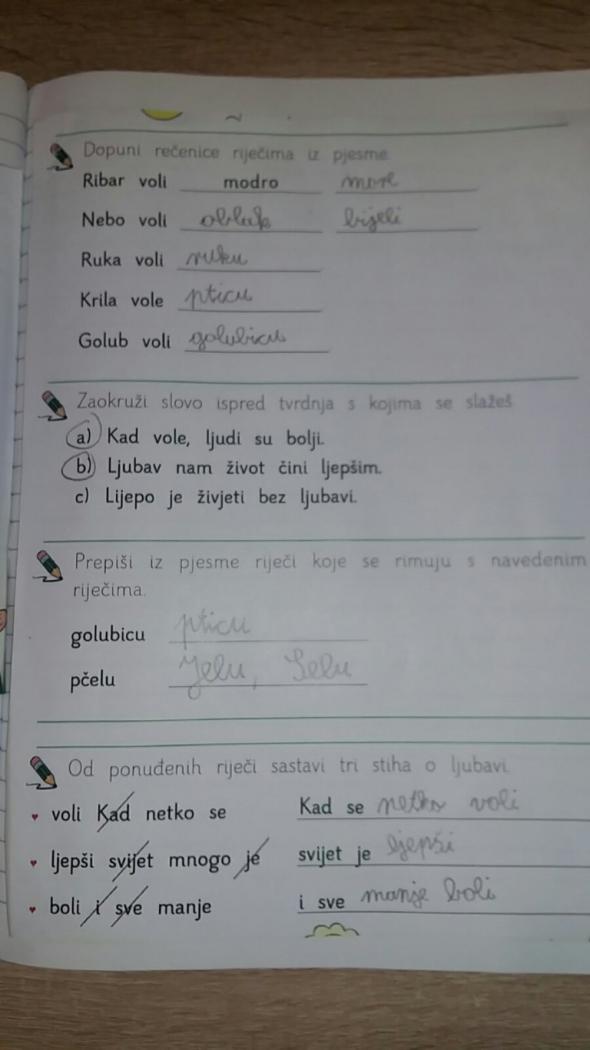 Dopuni rečenice riječima iz pjesme.
Ribar voli modro more
Nebo voli oblak bijeli
Ruka voli ruku
Krila vole pticu
Golub voli golubicu
Zaokruži slovo ispred tvrdnja s kojima se slažeš.
a) Kad vole, ljudi su bolji.
b) Ljubav nam život čini ljepšim.
c) Lijepo je živjeti bez ljubavi.
Prepiši iz pjesme riječi koje se rimuju s navedenim
riječima.
golubicu pticu
pčelu Jelu, Selu
Od ponuđenih riječi sastavi tri stiha o ljubavi.
voli Kad netko se Kad se netko voli
ljepši svijet mnogo je svijet je ljepši
boli i sve manje i sve manje boli